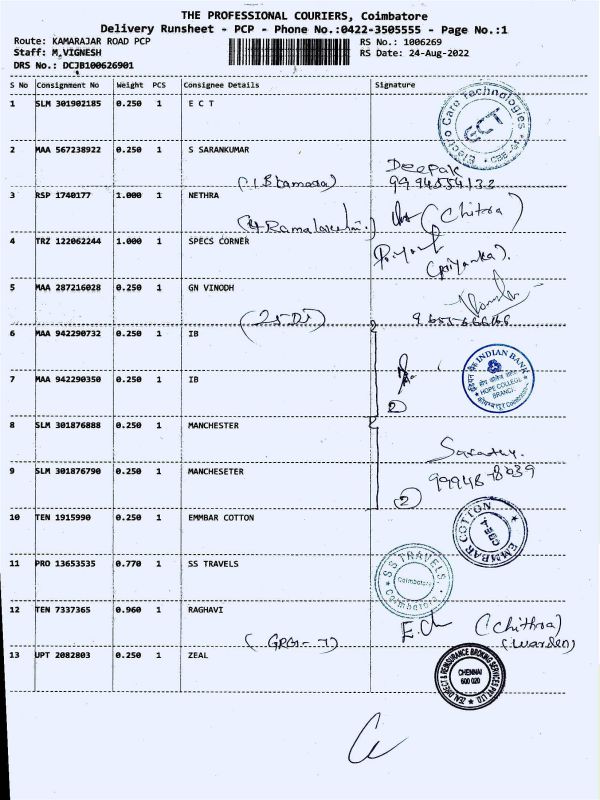 THE PROFESSIONAL COURIERS, Coimbatore
Delivery Runsheet - PCP - Phone No.:0422-3505555 - Page No.:1
Route: KAMARAJAR ROAD PCP RS No.: 1006269
Staff: M,VIGNESH RS Date: 24-Aug-2022
DRS No.: DCJB100626901
S No Consignment No Weight PCS Consignee Details Signature
1 SLM 301902185 0.250 1 E C T
Electro Care Technologies
ECT
2 MAA 567238922 0.250 1 S SARANKUMAR
Deepak
3 RSP 1740177 1.000 1 NETHRA
(Chitra)
4 TRZ 122062244 1.000 1 SPECS CORNER
(Priyanka).
5 MAA 287216028 0.250 1 GN VINODH
6 MAA 942290732 0.250 1 IB
INDIAN BANK
HOPE COLLEGE
BRANCH
7 MAA 942290350 0.250 1 IB
2
8 SLM 301876888 0.250 1 MANCHESTER
9 SLM 301876790 0.250 1 MANCHESETER
2
10 TEN 1915990 0.250 1 EMMBAR COTTON
EMMBAR COTTON
CBE-4
11 PRO 13653535 0.770 1 SS TRAVELS
SS TRAVELS
Coimbatore
Coimbatore
12 TEN 7337365 0.960 1 RAGHAVI
(Chithra)
(Warden)
13 UPT 2082803 0.250 1 ZEAL
ZEAL DIRECT & REINSURANCE BROKING SERVICES PVT LTD
CHENNAI
600 020